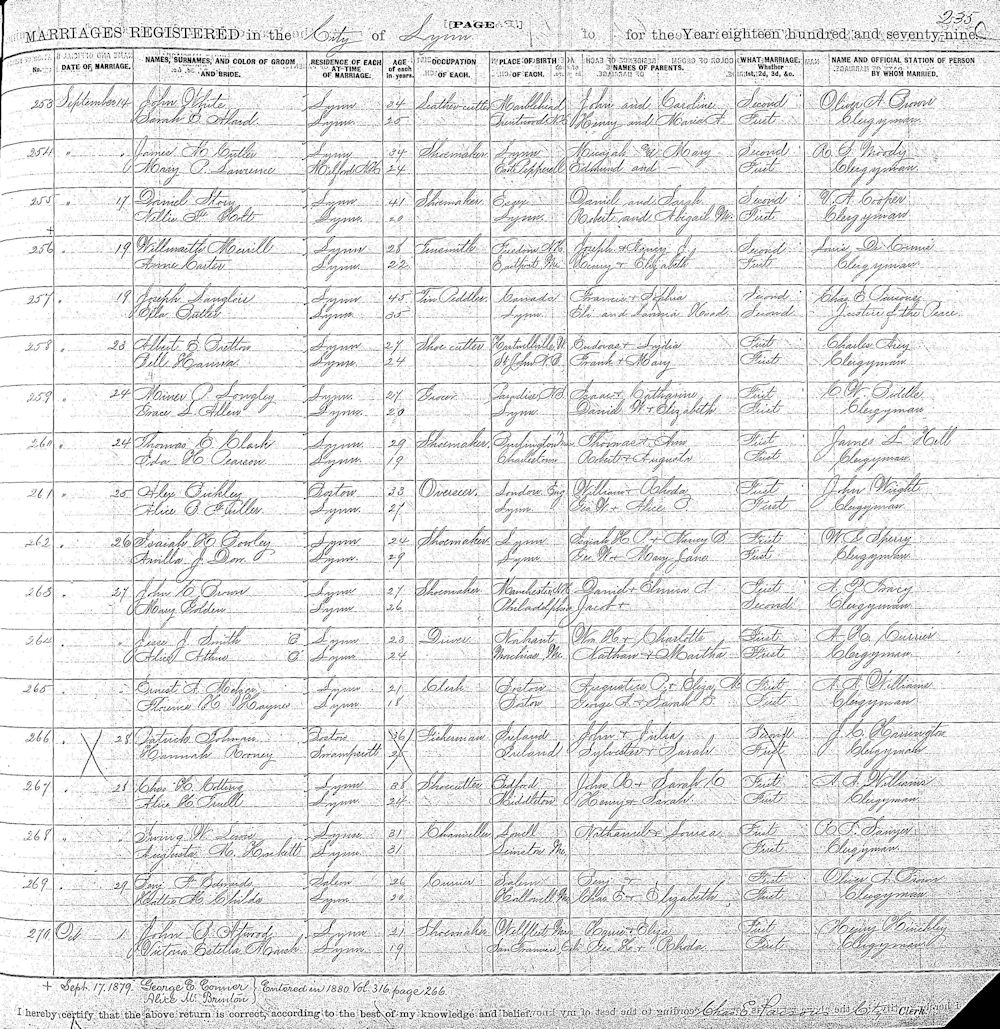 235
[PAGE]
MARRIAGES REGISTERED in the City of Lynn to for the Year eighteen hundred and seventy-nine
No. DATE OF MARRIAGE. NAMES, SURNAMES, AND COLOR OF GROOM AND BRIDE. RESIDENCE OF EACH AT TIME OF MARRIAGE. AGE of each in years. OCCUPATION OF EACH. PLACE OF BIRTH OF EACH. NAMES OF PARENTS. WHAT MARRIAGE, Whether 1st, 2d, 3d, &c. NAME AND OFFICIAL STATION OF PERSON BY WHOM MARRIED.
253 September 14 John White Lynn 34 Leather-cutter Marblehead John and Caroline Second Oliver A. Brown
Sarah E. Lynn 25 Brentwood N.H. Henry and Maria A. First Clergyman
254 " " James H. Cutler Lynn 34 Shoemaker Lynn Micajah W. Mary Second R. S. Moody
Mary P. Lawrence Milford N.H. 24 East Pepperell Edmund and — First Clergyman
255 " 17 Daniel Story Lynn 41 Shoemaker Essex Daniel and Sarah Second V. A. Cooper
+ Nellie Holt Lynn 20 Lynn Robert and Abigail M. First Clergyman
256 " 19 Merrill Lynn 28 Tinsmith Freedom N.H. Joseph + Nancy Second
Anne Carter Lynn 22 Eastport Me. Henry + Elizabeth First Clergyman
257 " 19 Joseph Langlois Lynn 45 Tin Peddler Canada Francis + Sophia Second Chas. E. Parsons
Ella Butler Lynn 35 Lynn Eli and Second Justice of the Peace
258 " 23 Albert B. Bratton Lynn 27 Shoe cutter Hartwellville Vt. + Lydia First Charles
Bell Hanna Lynn 24 St. John N.B. Frank + Mary First Clergyman
259 " 24 Miner P. Longley Lynn 27 Grocer Paradise N.S. Isaac + Catharine First
Grace L. Allen Lynn 20 Lynn David W + Elizabeth First Clergyman
260 " 24 Thomas E. Clark Lynn 29 Shoemaker Burlington Thomas + Ann First James L. Hill
Ida H. Pearson Lynn 19 Charlestown Robert + Augusta First Clergyman
261 " 25 Alex Boston 33 Overseer London Eng William + Rhoda First John Wright
Alice Lynn 27 Lynn Geo W + Alice P. First Clergyman
262 " 26 Isaiah H. Lynn 24 Shoemaker Lynn Isaiah H. P. + Nancy B First W. G. Sperry
J. Dow Lynn 29 Lynn Geo W + Mary Jane First Clergyman
263 " 27 John C. Brown Lynn 27 Shoemaker Manchester N.H. David + A First
Mary Golden Lynn 26 Philadelphia Jacob + Second Clergyman
264 " " Jesse J. Smith C Lynn 23 Driver Nahant Wm H. + Charlotte First A. H. Currier
Alice C Lynn 24 Machias Me. Nathan + Martha First Clergyman
265 " " Ernest A. Lynn 21 Clerk Boston Augustus P. + Eliza M. First A. A. Williams
Florence H. Haynes Lynn 18 Boston George A. + Sarah First Clergyman
266 " 28 Patrick Boston 36 Fisherman Ireland John + Julia Second J. C. Harrington
Hannah Rooney Swampscott Ireland Sylvester + Sarah First Clergyman
267 " 28 Chas. H. Cutting Lynn 38 Shoecutter Bedford John R + Sarah C First A. A. Williams
Alice H. Lynn 24 Middleton Henry + Sarah First Clergyman
268 " " Irving W. Lynn 31 Lowell Nathaniel + Louisa First R. T. Sawyer
Augusta M. Hackett Lynn 31 Me. First Clergyman
269 " 29 Benj. F. Edwards Salem 26 Currier Salem Benj. + First Oliver A. Brown
Hattie H. Childs Lynn 20 Hallowell Me. Chas E + Elizabeth First Clergyman
270 Oct 1 John S. Atwood Lynn 21 Shoemaker Wellfleet + Eliza First Henry Hinckley
Victoria Estella Marsh Lynn 19 San Francisco Cal. Geo + Rhoda First Clergyman
+ Sept. 17. 1879. George E. Conner } Entered in 1880. Vol. 316, page 266.
Alice M. Brinton }
I hereby certify that the above return is correct, according to the best of my knowledge and belief. Chas E. Parsons City Clerk.